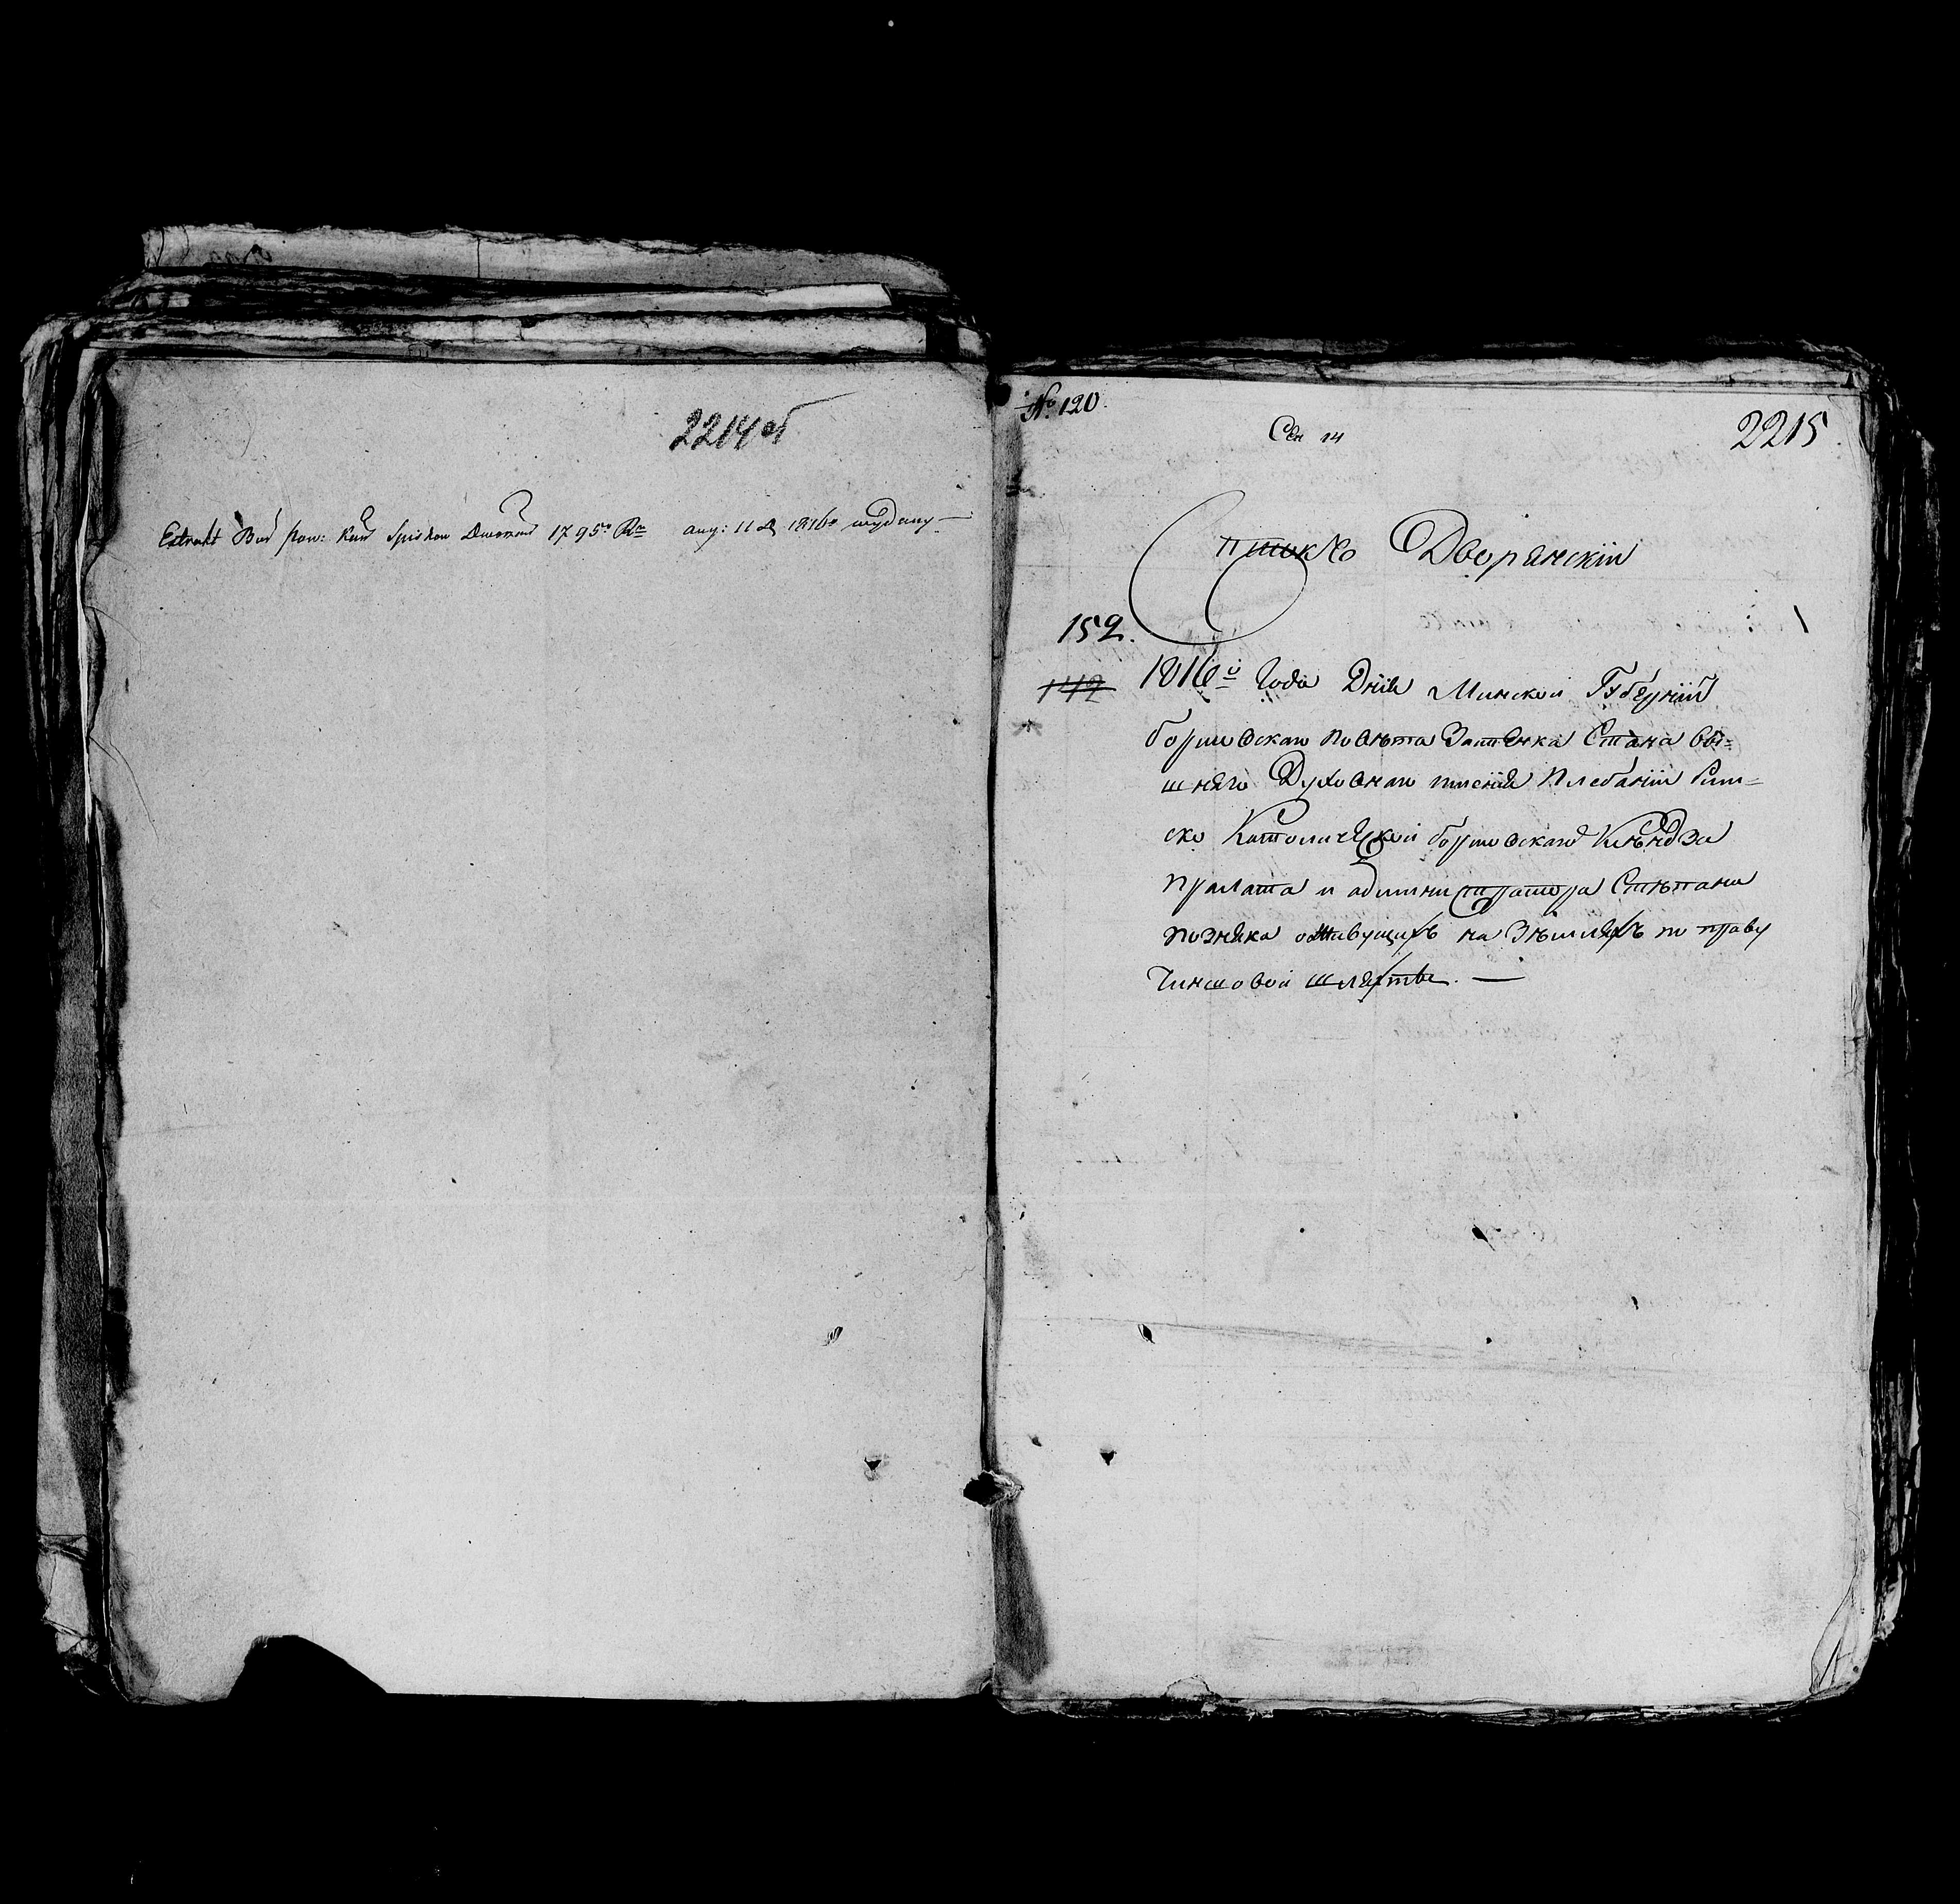 2214об
Extrakt spiskow 1795го Ru aug: 11 d. 1816го wydany —
№ 120.
Сен 14
2215
Списокъ Дворянскій
152.
142
1816й Года Дня Минской Губерніи
борисовскаго повѣта Застенка Стана вы=
шняго Духовнаго имения плебаніи Рим=
ско Католической борисовскаго Ксендза
прилата и администратора Стѣпана
позняка оживущихъ на Зѣмляхъ по праву
Чиншовой шляхты. —